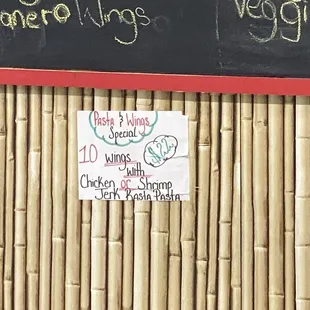 anero Wings
veggi
Pasta & Wings
Special
10 wings
$22
with
Chicken or Shrimp
Jerk Rasta Pasta